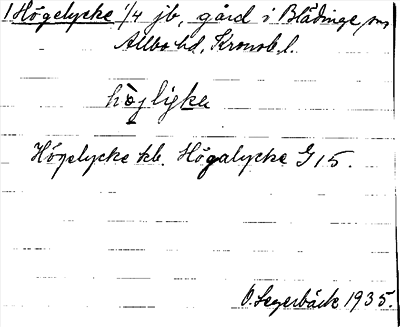 1 Högelycke 1/4 jb, gård i Blädinge sn
Allbo hd, Kronob. l.
högligka
Högelycke kb. Högalycke G 15.
O. Segerbäck 1935.